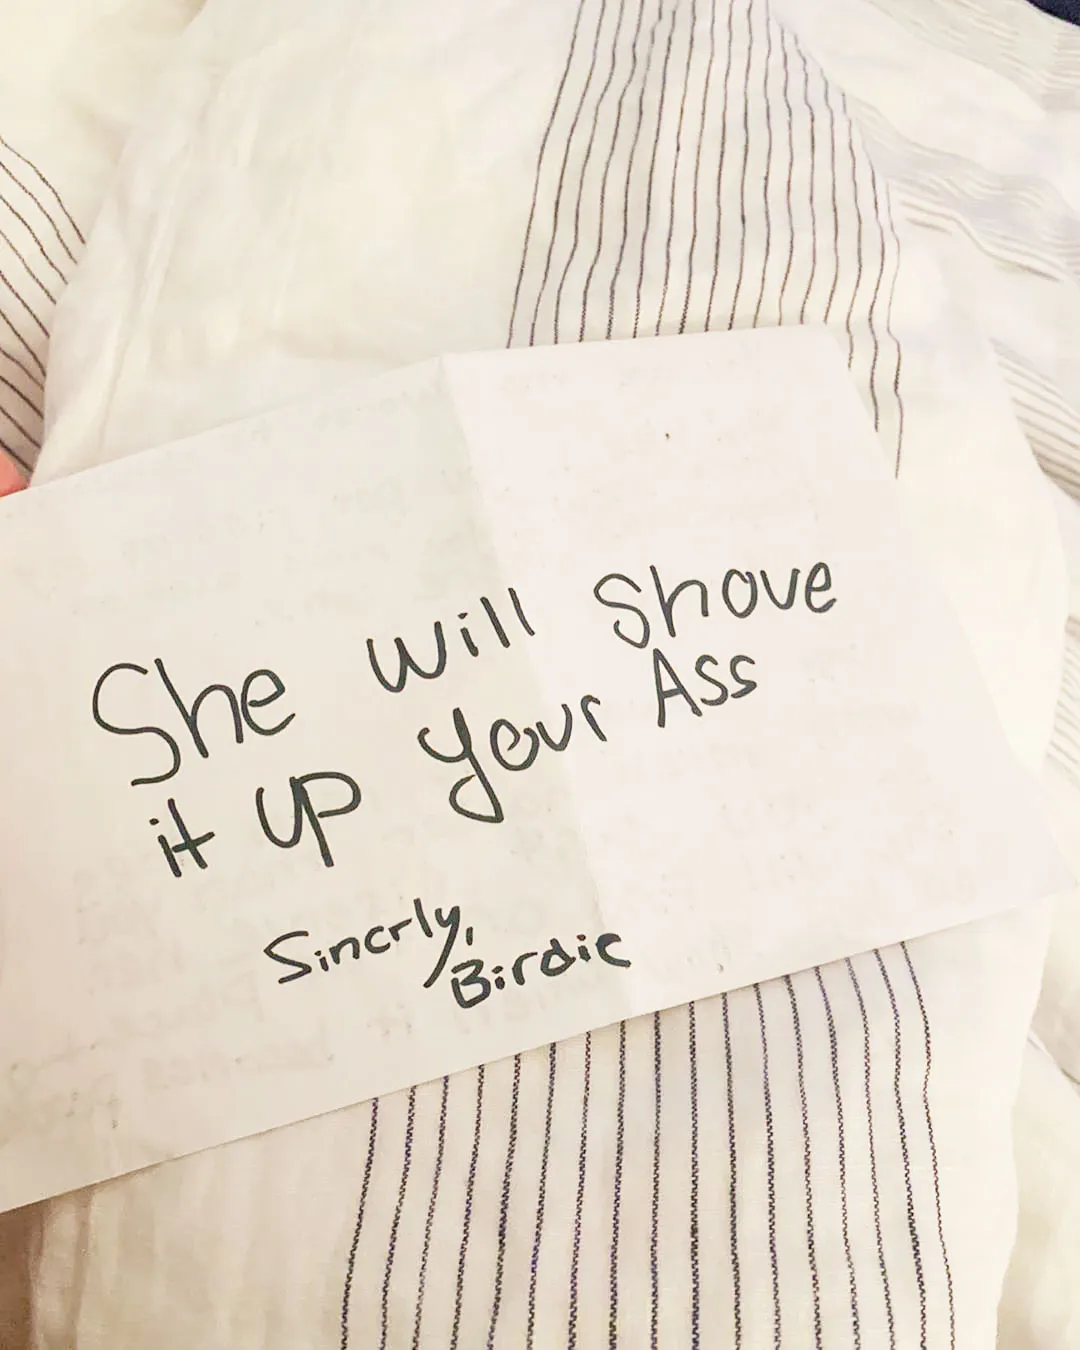 She will shove
it up your Ass
Sincrly,
Birdie